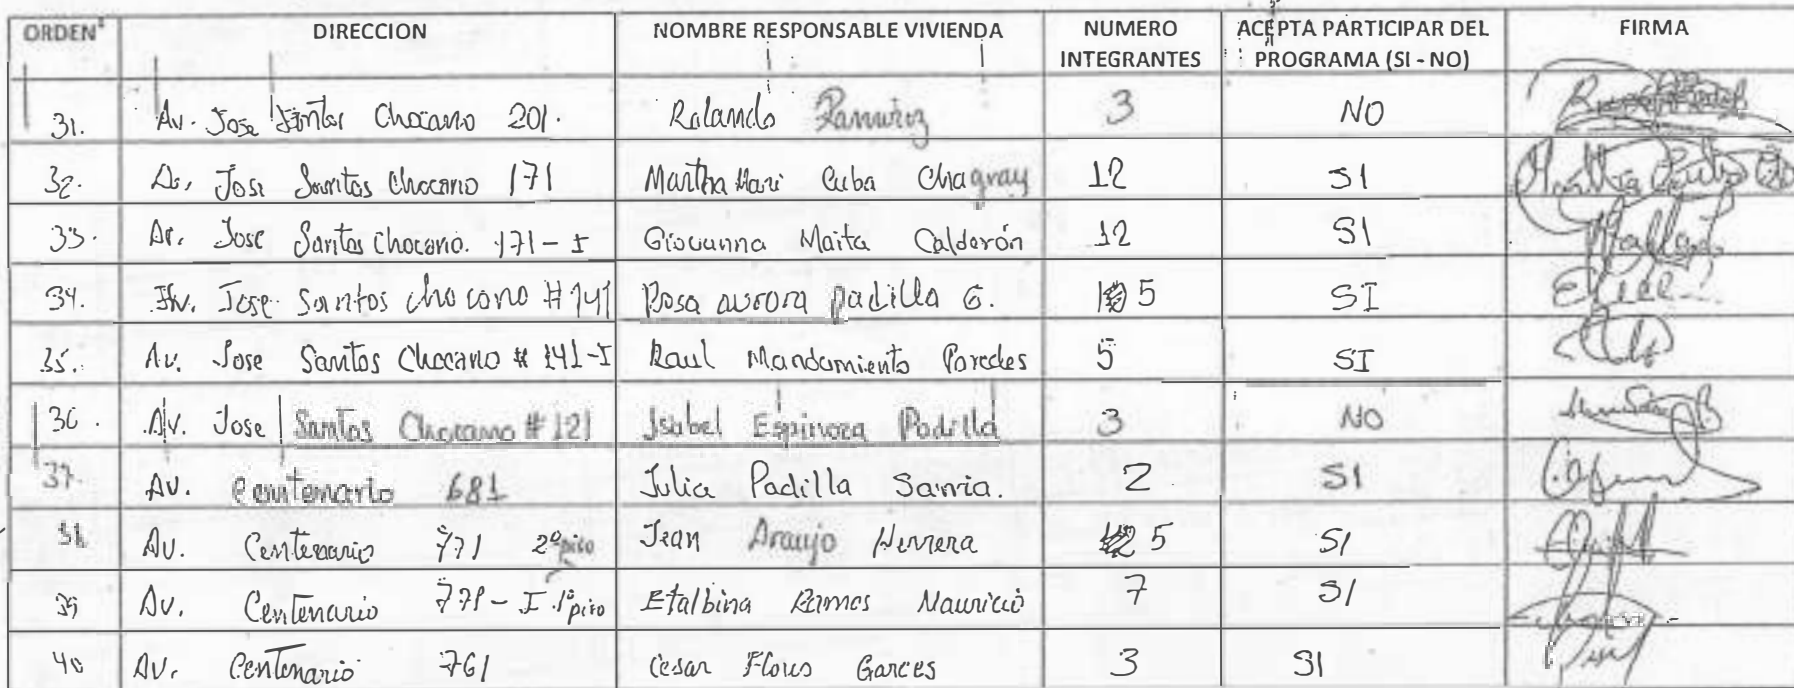 ORDEN DIRECCION NOMBRE RESPONSABLE VIVIENDA NUMERO INTEGRANTES ACEPTA PARTICIPAR DEL PROGRAMA (SI - NO) FIRMA
31. Av. Jose Santos Chocano 201. Rolando Ramirez 3 NO
32. Av. Jose Santos Chocano 171 Martha Mari Cuba Chagray 12 SI
33. Av. Jose Santos Chocano. 171 - I Giovanna Maita Calderón 12 SI
34. Av. Jose Santos Chocano # 141 Rosa aurora padilla G. 5 SI
35. Av. Jose Santos Chocano # 141-I Raul Mandamiento Paredes 5 SI
36. Av. Jose Santos Chocano # 121 Isabel Espinoza Padilla 3 NO
37. AV. Centenario 681 Julia Padilla Sarria. 2 SI
38 Av. Centenario 771 2º piso Jean Araujo Herrera 5 SI
39 Av. Centenario 771 - I 1º piso Etalbina Ramos Mauricio 7 SI
40 AV. Centenario 761 Cesar Flores Garces 3 SI